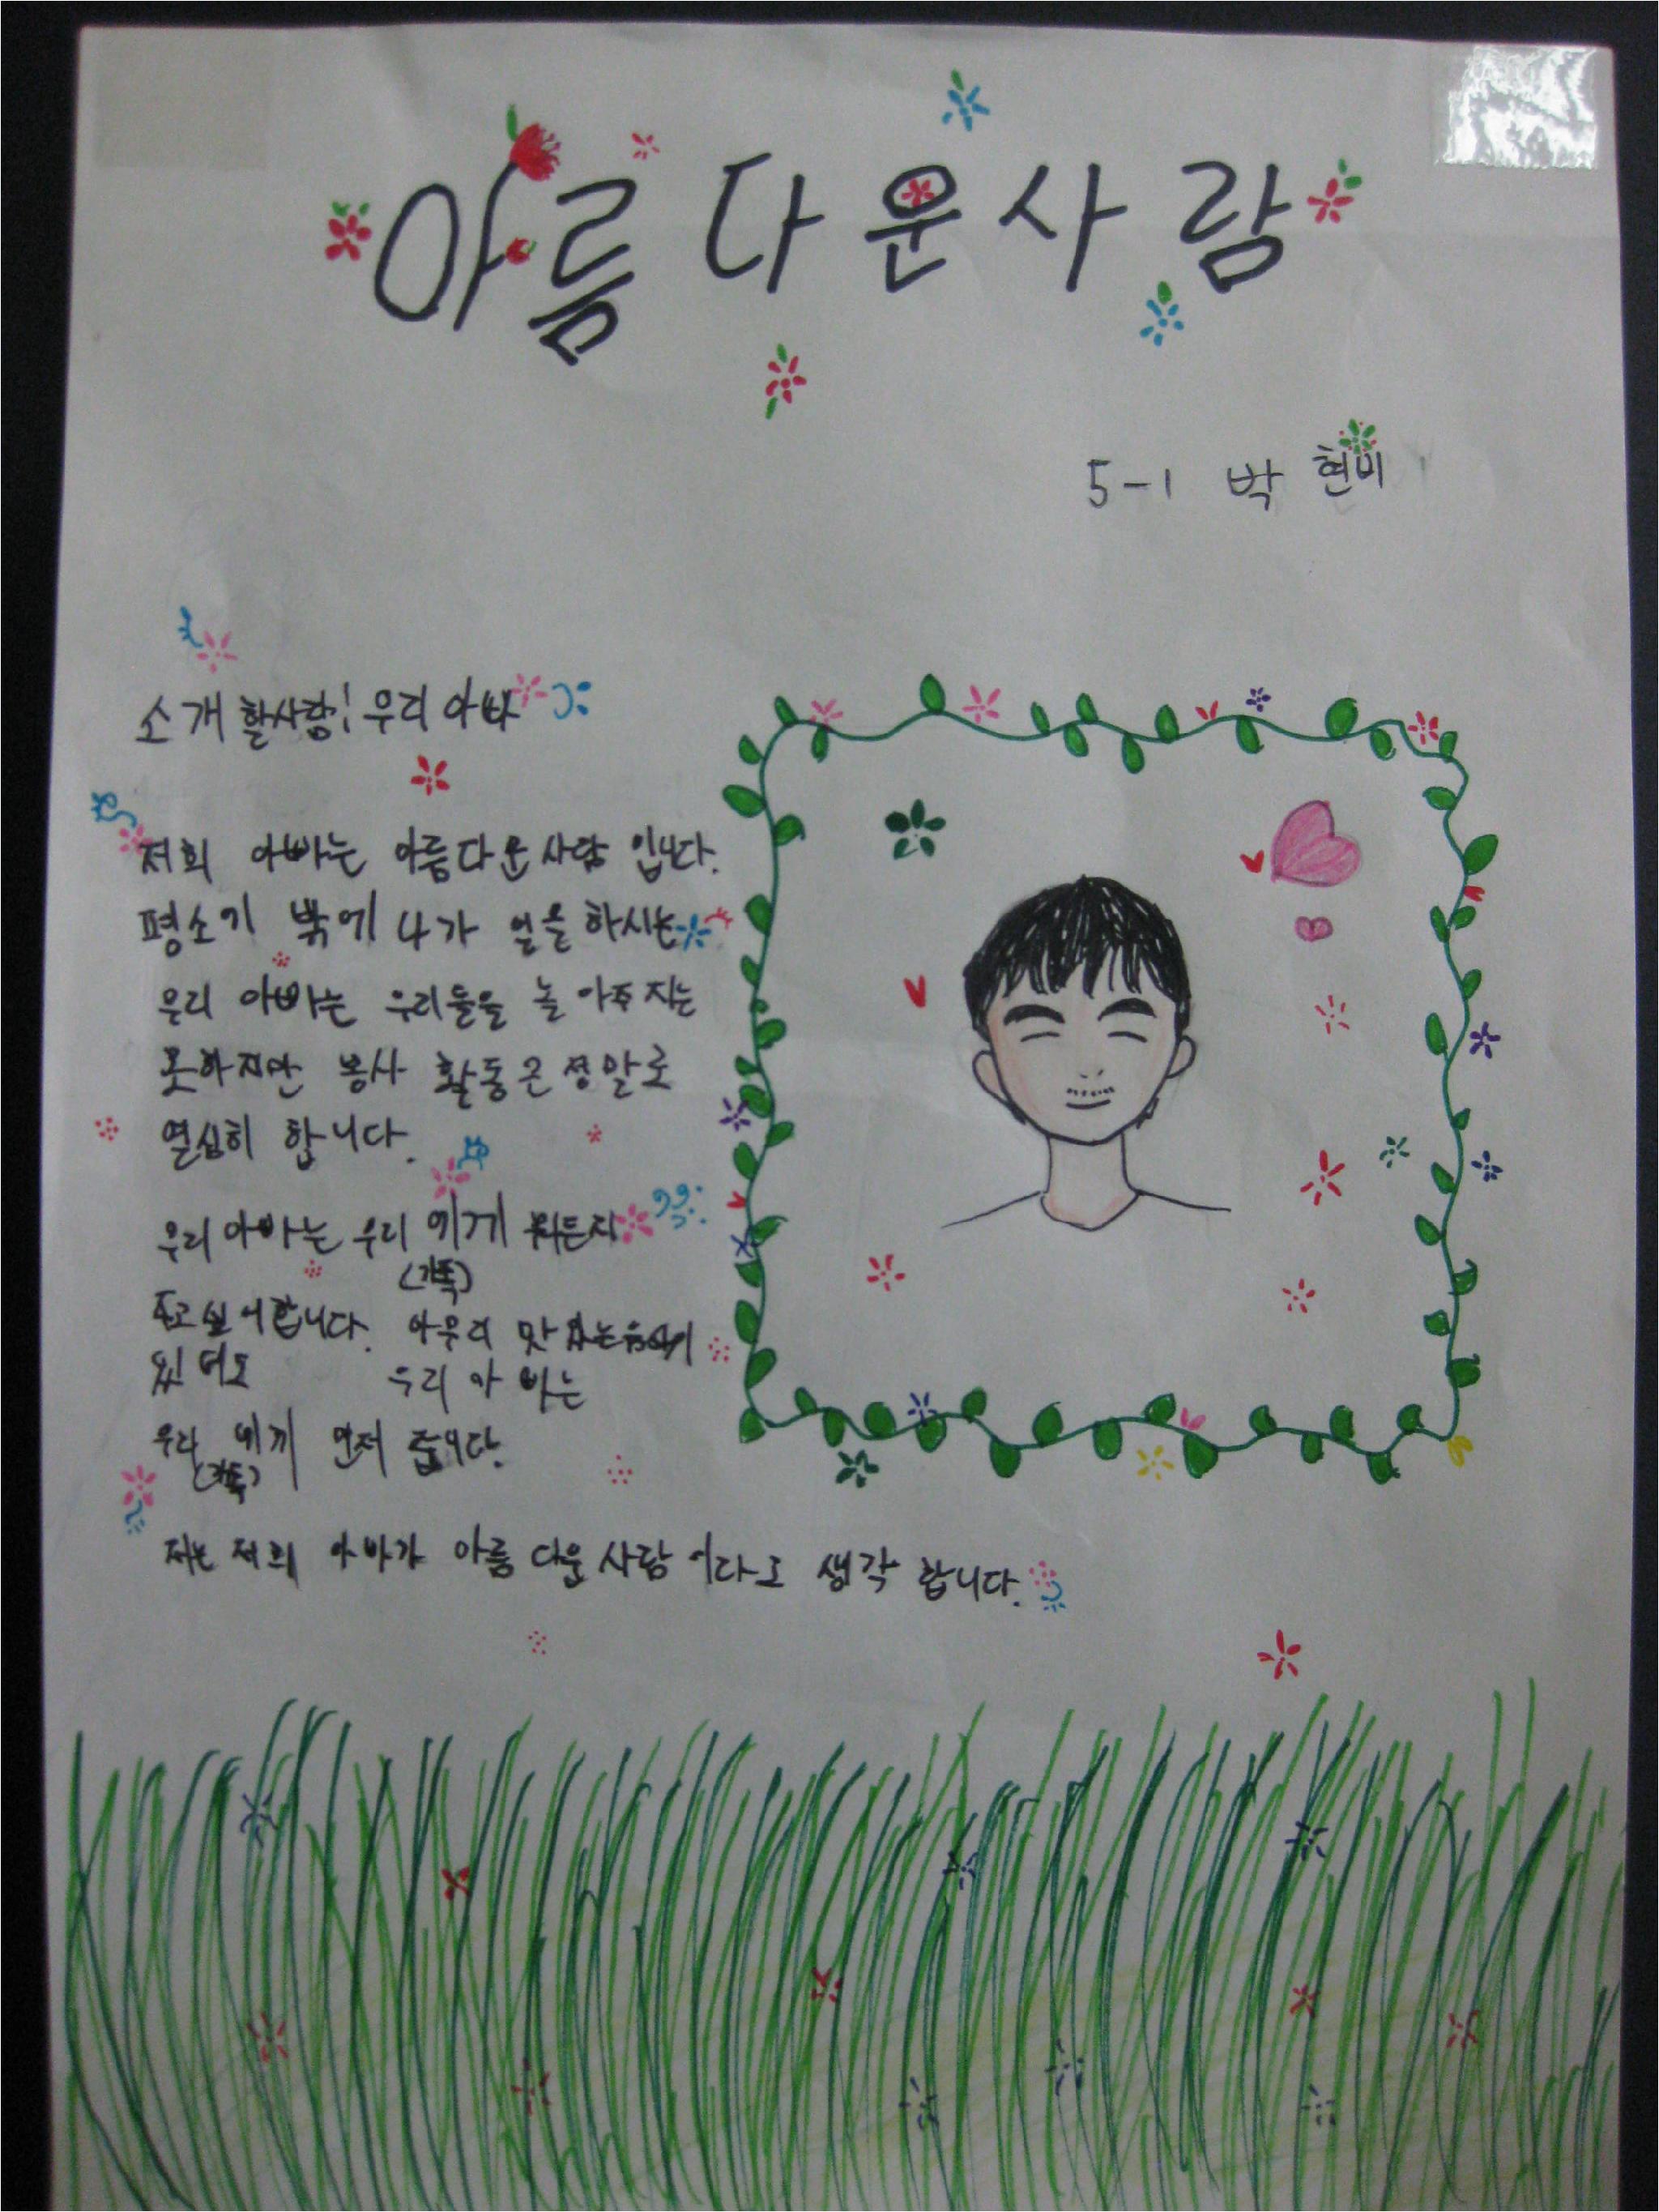 아름다운사람
5-1 박현비
소개할사람! 우리아빠
저희 아빠는 아름다운사람 입니다.
평소기 밖에 나가 일을하시는
우리 아빠는 우리들을 놀아주지는
못하지만 봉사 활동은 정말로
열심히 합니다.
우리아빠는 우리 에게 뭐든지
(가족)
주고싶어합니다. 아무리 맛있는음식이
있더도 우리 아빠는
우리 에게 먼저 줍니다.
(가족)
저는 저희 아빠가 아름다운사람이라고 생각합니다.